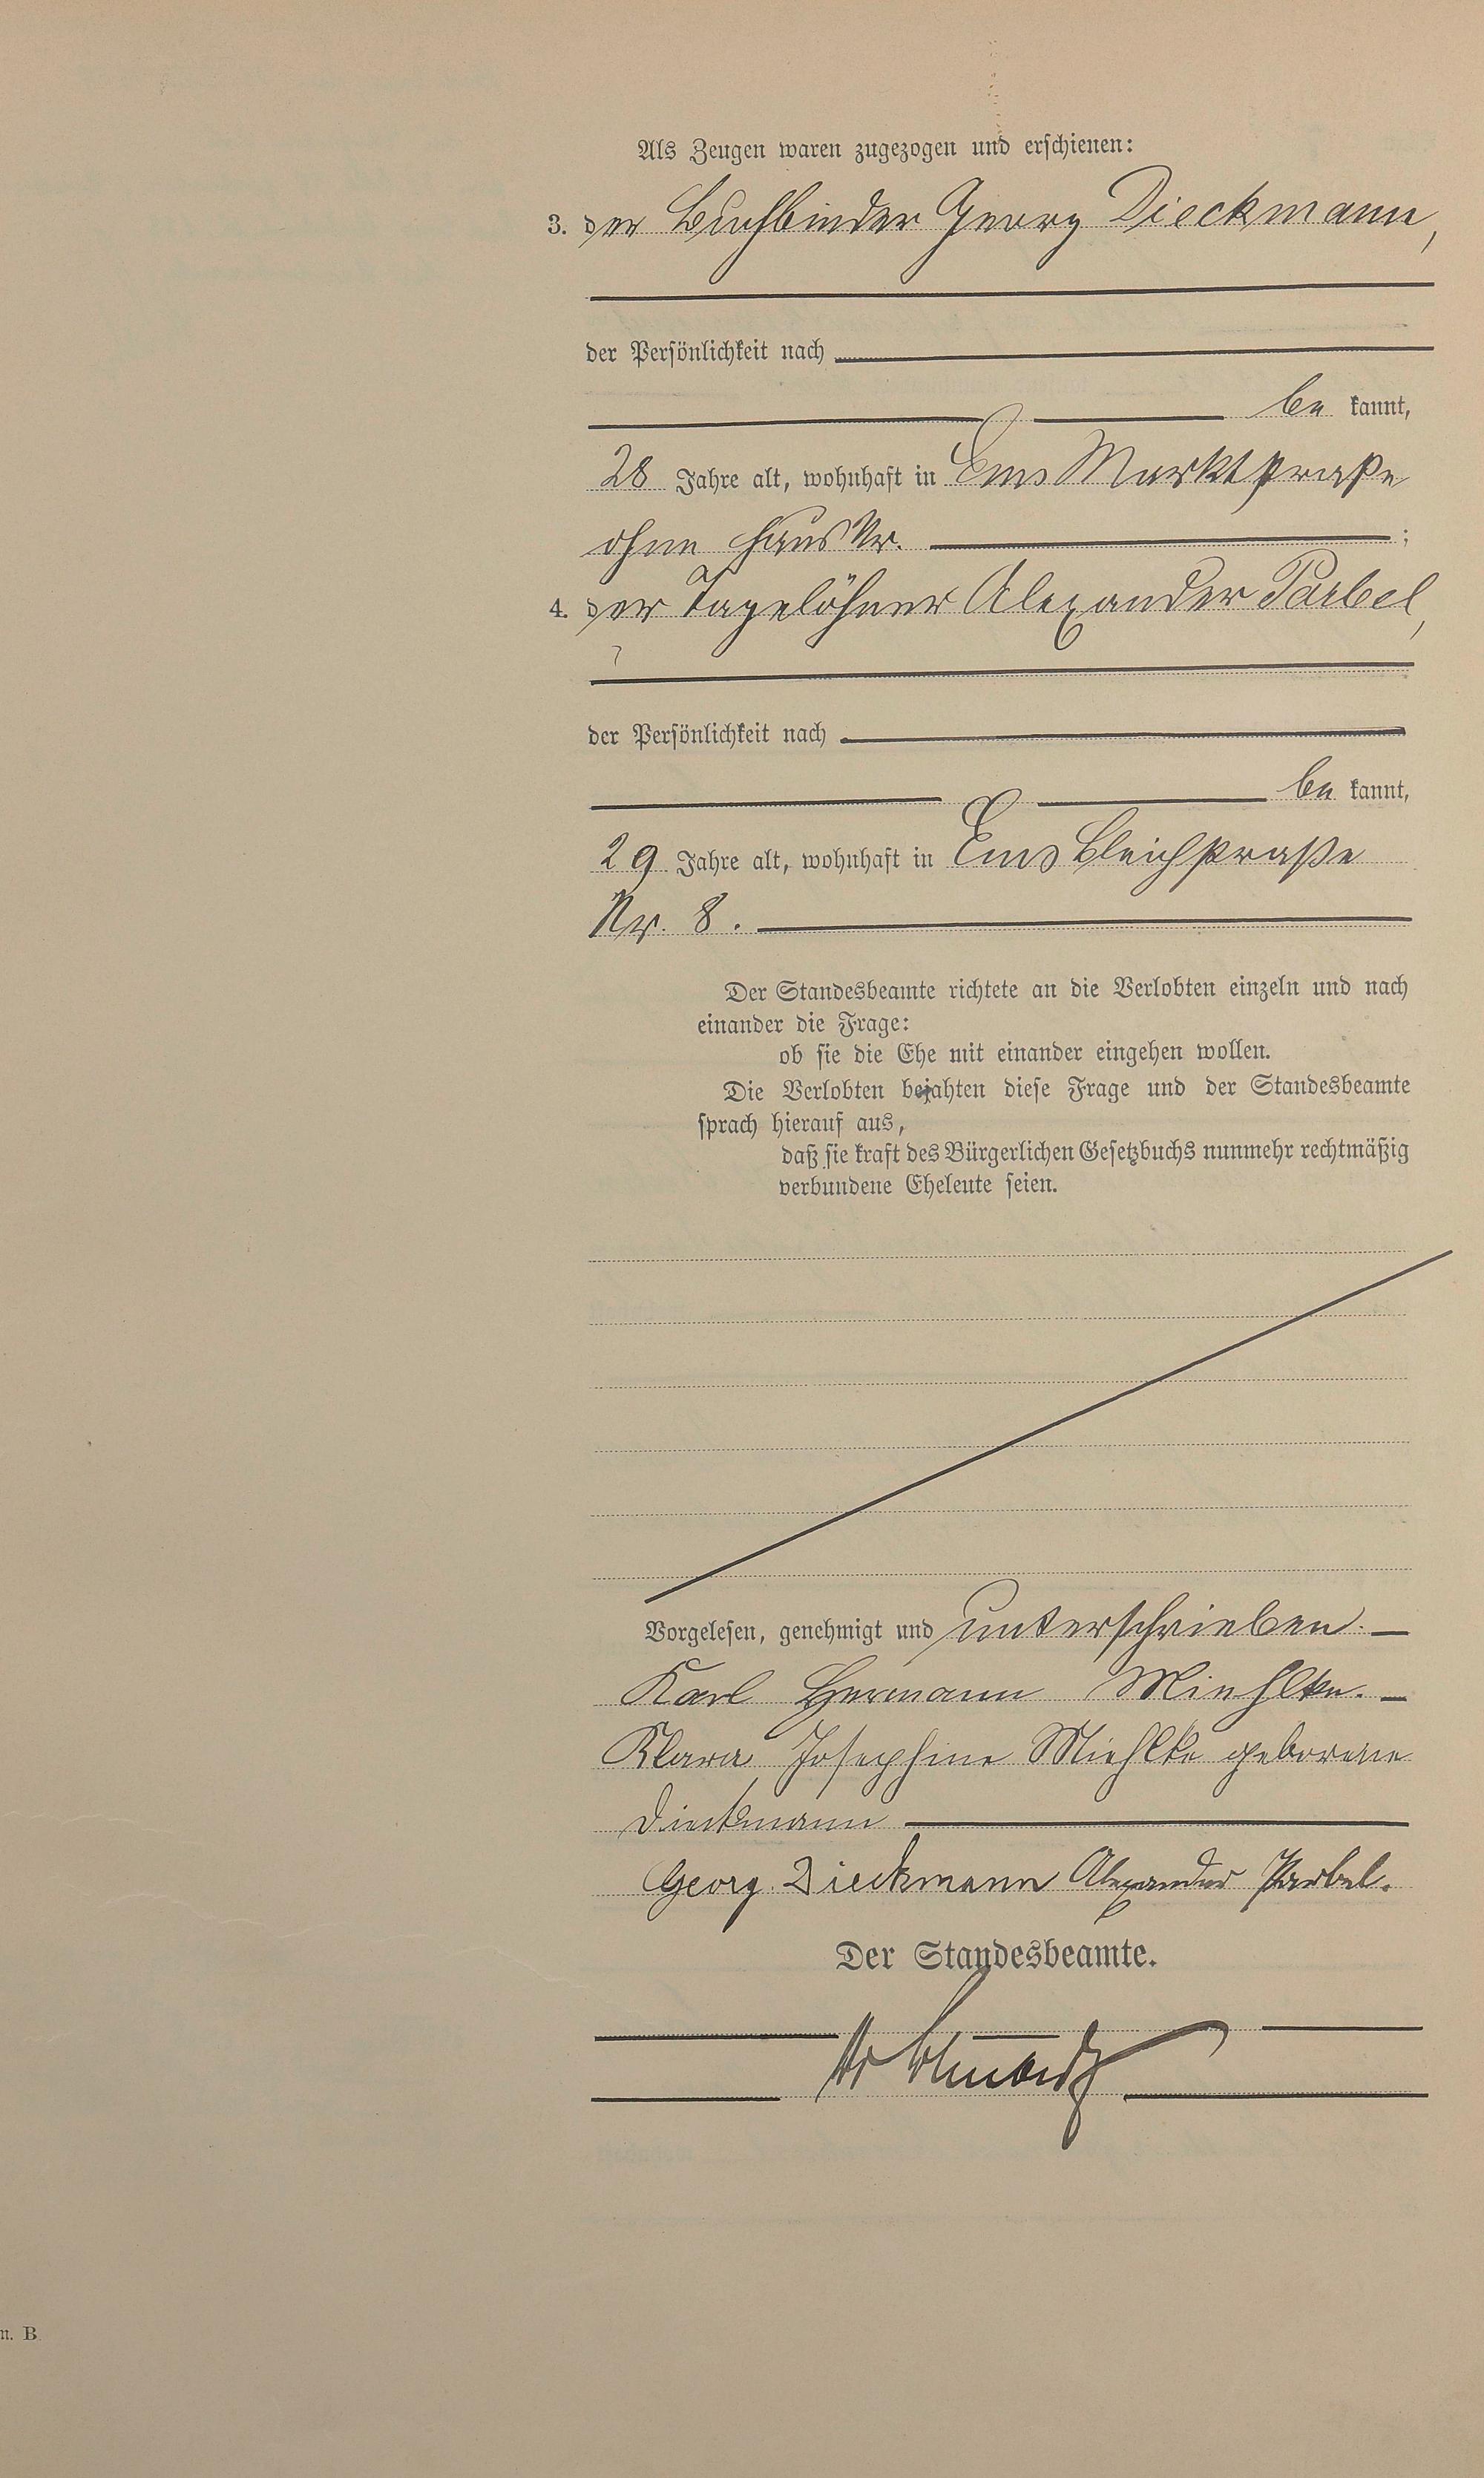 Als Zeugen waren zugezogen und erschienen:
3. der Buchbinder Georg Dieckmann,
der Persönlichkeit nach
be kannt,
28 Jahre alt, wohnhaft in Ems Marktstraße
ohne Haus Nr. ;
4. der Tagelöhner Alexander Parbel,
der Persönlichkeit nach
be kannt,
29 Jahre alt, wohnhaft in Ems Bleichstraße
Nr. 8.
Der Standesbeamte richtete an die Verlobten einzeln und nach
einander die Frage:
ob sie die Ehe mit einander eingehen wollen.
Die Verlobten bejahten diese Frage und der Standesbeamte
sprach hierauf aus,
daß sie kraft des Bürgerlichen Gesetzbuchs nunmehr rechtmäßig
verbundene Eheleute seien.
Vorgelesen, genehmigt und unterschrieben.
Karl Hermann Miehlke.
Klara Josephine Miehlke geborene
Dieckmann
Georg Dieckmann Alexander Parbel.
Der Standesbeamte.
n. B